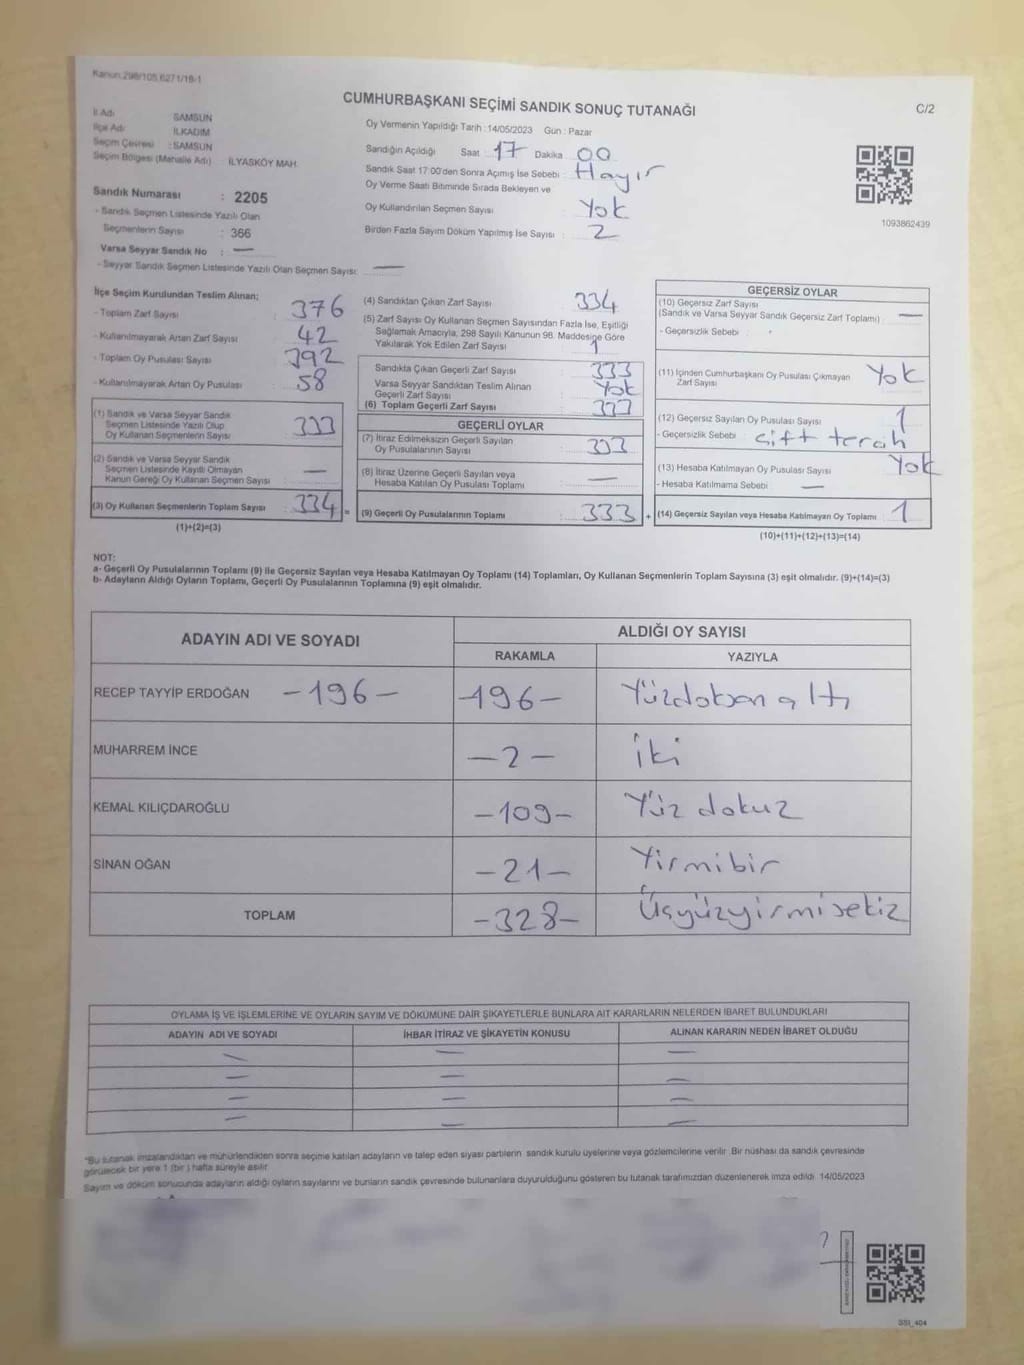 Kanun 298/105,6271/18-1
CUMHURBAŞKANI SEÇİMİ SANDIK SONUÇ TUTANAĞI
C/2
İl Adı SAMSUN
İlçe Adı İLKADIM
Seçim Çevresi : SAMSUN
Seçim Bölgesi (Mahalle Adı) İLYASKÖY MAH.
Sandık Numarası : 2205
- Sandık Seçmen Listesinde Yazılı Olan
Seçmenlerin Sayısı : 366
Varsa Seyyar Sandık No : —
- Seyyar Sandık Seçmen Listesinde Yazılı Olan Seçmen Sayısı: —
Oy Vermenin Yapıldığı Tarih : 14/05/2023 Gün : Pazar
Sandığın Açıldığı Saat 17 Dakika 00
Sandık Saat 17:00'den Sonra Açımış İse Sebebi : Hayır
Oy Verme Saati Bitiminde Sırada Bekleyen ve
Oy Kullandırılan Seçmen Sayısı Yok
Birden Fazla Sayım Döküm Yapılmış İse Sayısı : 2
1093862439
İlçe Seçim Kurulundan Teslim Alınan;
- Toplam Zarf Sayısı 376
- Kullanılmayarak Artan Zarf Sayısı 42
- Toplam Oy Pusulası Sayısı 392
- Kullanılmayarak Artan Oy Pusulası 58
(1) Sandık ve Varsa Seyyar Sandık
Seçmen Listesinde Yazılı Olup
Oy Kullanan Seçmenlerin Sayısı : 333
(2) Sandık ve Varsa Seyyar Sandık
Seçmen Listesinde Kayıtlı Olmayan
Kanun Gereği Oy Kullanan Seçmen Sayısı : —
(3) Oy Kullanan Seçmenlerin Toplam Sayısı : 334 =
(1)+(2)=(3)
(4) Sandıktan Çıkan Zarf Sayısı 334
(5) Zarf Sayısı Oy Kullanan Seçmen Sayısından Fazla İse, Eşitliği
Sağlamak Amacıyla, 298 Sayılı Kanunun 98. Maddesine Göre
Yakılarak Yok Edilen Zarf Sayısı 1
Sandıkta Çıkan Geçerli Zarf Sayısı : 333
Varsa Seyyar Sandıktan Teslim Alınan
Geçerli Zarf Sayısı Yok
(6) Toplam Geçerli Zarf Sayısı : 333
GEÇERLİ OYLAR
(7) İtiraz Edilmeksizin Geçerli Sayılan
Oy Pusulalarının Sayısı : 333
(8) İtiraz Üzerine Geçerli Sayılan veya
Hesaba Katılan Oy Pusulası Toplamı : —
(9) Geçerli Oy Pusulalarının Toplamı : 333 +
GEÇERSİZ OYLAR
(10) Geçersiz Zarf Sayısı
(Sandık ve Varsa Seyyar Sandık Geçersiz Zarf Toplamı) : —
- Geçersizlik Sebebi :
(11) İçinden Cumhurbaşkanı Oy Pusulası Çıkmayan
Zarf Sayısı Yok
(12) Geçersiz Sayılan Oy Pusulası Sayısı 1
- Geçersizlik Sebebi : çift tercih
(13) Hesaba Katılmayan Oy Pusulası Sayısı Yok
- Hesaba Katılmama Sebebi —
(14) Geçersiz Sayılan veya Hesaba Katılmayan Oy Toplamı 1
(10)+(11)+(12)+(13)=(14)
NOT:
a- Geçerli Oy Pusulalarının Toplamı (9) ile Geçersiz Sayılan veya Hesaba Katılmayan Oy Toplamı (14) Toplamları, Oy Kullanan Seçmenlerin Toplam Sayısına (3) eşit olmalıdır. (9)+(14)=(3)
b- Adayların Aldığı Oyların Toplamı, Geçerli Oy Pusulalarının Toplamına (9) eşit olmalıdır.
ADAYIN ADI VE SOYADI
ALDIĞI OY SAYISI
RAKAMLA YAZIYLA
RECEP TAYYİP ERDOĞAN -196- -196- Yüzdoksan altı
MUHARREM İNCE -2- iki
KEMAL KILIÇDAROĞLU -109- Yüz dokuz
SİNAN OĞAN -21- Yirmibir
TOPLAM -328- Üçyüzyirmisekiz
OYLAMA İŞ VE İŞLEMLERİNE VE OYLARIN SAYIM VE DÖKÜMÜNE DAİR ŞİKAYETLERLE BUNLARA AİT KARARLARIN NELERDEN İBARET BULUNDUKLARI
ADAYIN ADI VE SOYADI İHBAR İTİRAZ VE ŞİKAYETİN KONUSU ALINAN KARARIN NEDEN İBARET OLDUĞU
— — —
— — —
— — —
— — —
*Bu tutanak imzalandıktan ve mühürlendikten sonra seçime katılan adayların ve talep eden siyasi partilerin sandık kurulu üyelerine veya gözlemcilerine verilir. Bir nüshası da sandık çevresinde
görülecek bir yere 1 (bir) hafta süreyle asılır.
Sayım ve döküm sonucunda adayların aldığı oyların sayılarını ve bunların sandık çevresinde bulunanlara duyurulduğunu gösteren bu tutanak tarafımızdan düzenlenerek imza edildi. 14/05/2023
SSI_404